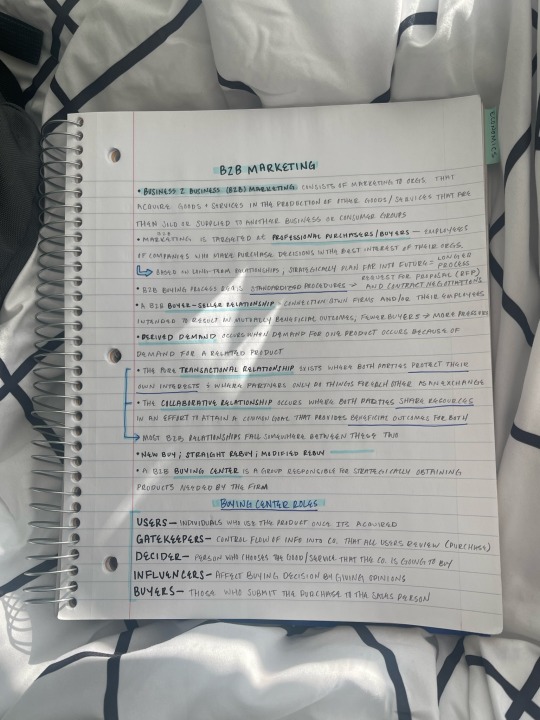 ECONOMICS
B2B MARKETING
• BUSINESS 2 BUSINESS (B2B) MARKETING CONSISTS OF MARKETING TO ORGS. THAT
ACQUIRE GOODS + SERVICES IN THE PRODUCTION OF OTHER GOODS/SERVICES THAT ARE
THEN SOLD OR SUPPLIED TO ANOTHER BUSINESS OR CONSUMER GROUPS
• B2B MARKETING IS TARGETED AT PROFESSIONAL PURCHASERS/BUYERS — EMPLOYEES
OF COMPANIES WHO MAKE PURCHASE DECISIONS IN THE BEST INTEREST OF THEIR ORGS.
BASED ON LONG-TERM RELATIONSHIPS, STRATEGICALLY PLAN FAR INTO FUTURE = LONGER PROCESS
• B2B BUYING PROCESS STANDARDIZED PROCEDURES → REQUEST FOR PROPOSAL (RFP) AND CONTRACT NEGOTIATIONS
• A B2B BUYER-SELLER RELATIONSHIP = CONNECTION BTWN FIRMS AND/OR THEIR EMPLOYEES
INTENDED TO RESULT IN MUTUALLY BENEFICIAL OUTCOMES, FEWER BUYERS → MORE
• DERIVED DEMAND OCCURS WHEN DEMAND FOR ONE PRODUCT OCCURS BECAUSE OF
DEMAND FOR A RELATED PRODUCT
• THE PURE TRANSACTIONAL RELATIONSHIP EXISTS WHERE BOTH PARTIES PROTECT THEIR
OWN INTERESTS & WHERE PARTNERS ONLY DO THINGS FOR EACH OTHER AS AN EXCHANGE
• THE COLLABORATIVE RELATIONSHIP OCCURS WHERE BOTH PARTIES SHARE RESOURCES
IN AN EFFORT TO ATTAIN A COMMON GOAL THAT PROVIDES BENEFICIAL OUTCOMES FOR BOTH
MOST B2B RELATIONSHIPS FALL SOMEWHERE BETWEEN THESE TWO
• NEW BUY; STRAIGHT REBUY; MODIFIED REBUY
• A B2B BUYING CENTER IS A GROUP RESPONSIBLE FOR STRATEGICALLY OBTAINING
PRODUCTS NEEDED BY THE FIRM
BUYING CENTER ROLES
USERS — INDIVIDUALS WHO USE THE PRODUCT ONCE ITS ACQUIRED
GATEKEEPERS — CONTROL FLOW OF INFO INTO CO. THAT ALL USERS REVIEW (PURCHASE)
DECIDER — PERSON WHO CHOOSES THE GOOD/SERVICE THAT THE CO. IS GOING TO BUY
INFLUENCERS — AFFECT BUYING DECISION BY GIVING OPINIONS
BUYERS — THOSE WHO SUBMIT THE PURCHASE TO THE SALES PERSON